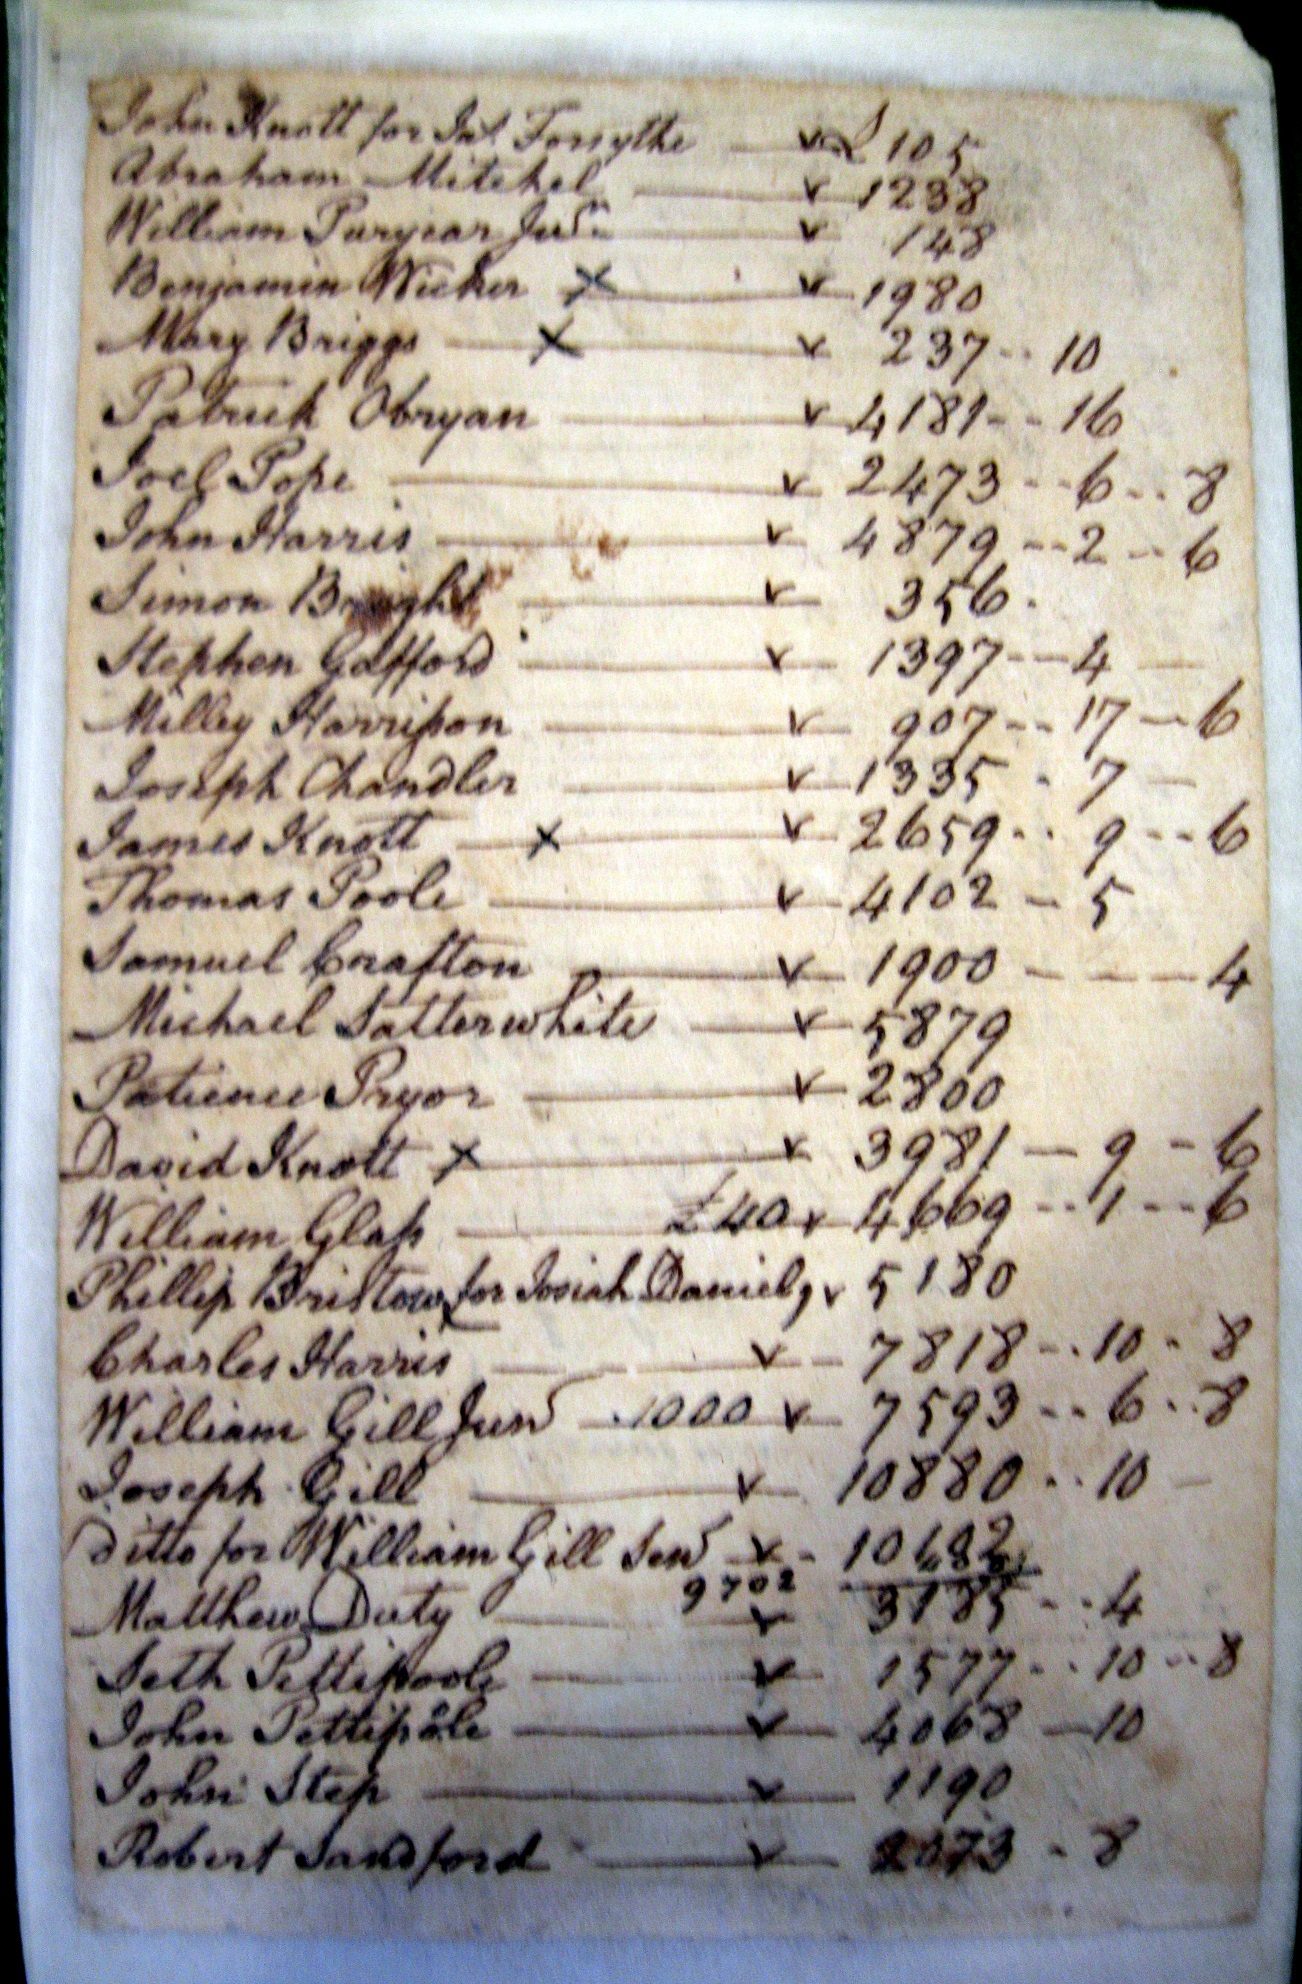 John Knott for Jas. Forsythe — v £ 105
Abraham Mitchel — v 1238
William Puryear Junr. — v 148
Benjamin Wicker X — v 1980
Mary Briggs — X — v 237 -- 10
Patrick Obryan — v 4181 -- 16
Joel Pope — v 2473 -- 6 -- 8
John Harris — v 4879 -- 2 -- 6
Simon Bright — v 356.
Stephen Gafford — v 1397 -- 4 —
Milley Harrison — v 907 -- 17 -- 6
Joseph Chandler — v 1335 - 7 —
James Knott — X — v 2659 -- 9 -- 6
Thomas Poole — v 4102 - 5
Samuel Crafton — v 1900 - - - 4
Michael Satterwhite — v 5879
Patience Pryor — v 2800
David Knott X — v 3981 — 9 - 6
William Glass — £40 v 4669 -- 1 -- 6
Phillip Bristow for Josiah Daniel, v 5180
Charles Harris — v 7818 -- 10 - 8
William Gill Junr — 1000 v 7593 -- 6 -- 8
Joseph Gill — v 10880 -- 10 —
Ditto for William Gill Senr — v -
9702
Matthew Duty — v 3185 -- 4
Seth Pettipoole — v 1577 -- 10 -- 8
John Pettipole — v 4068 — 10
John Step — v 1190
Robert Sandford — v 2073 - 8